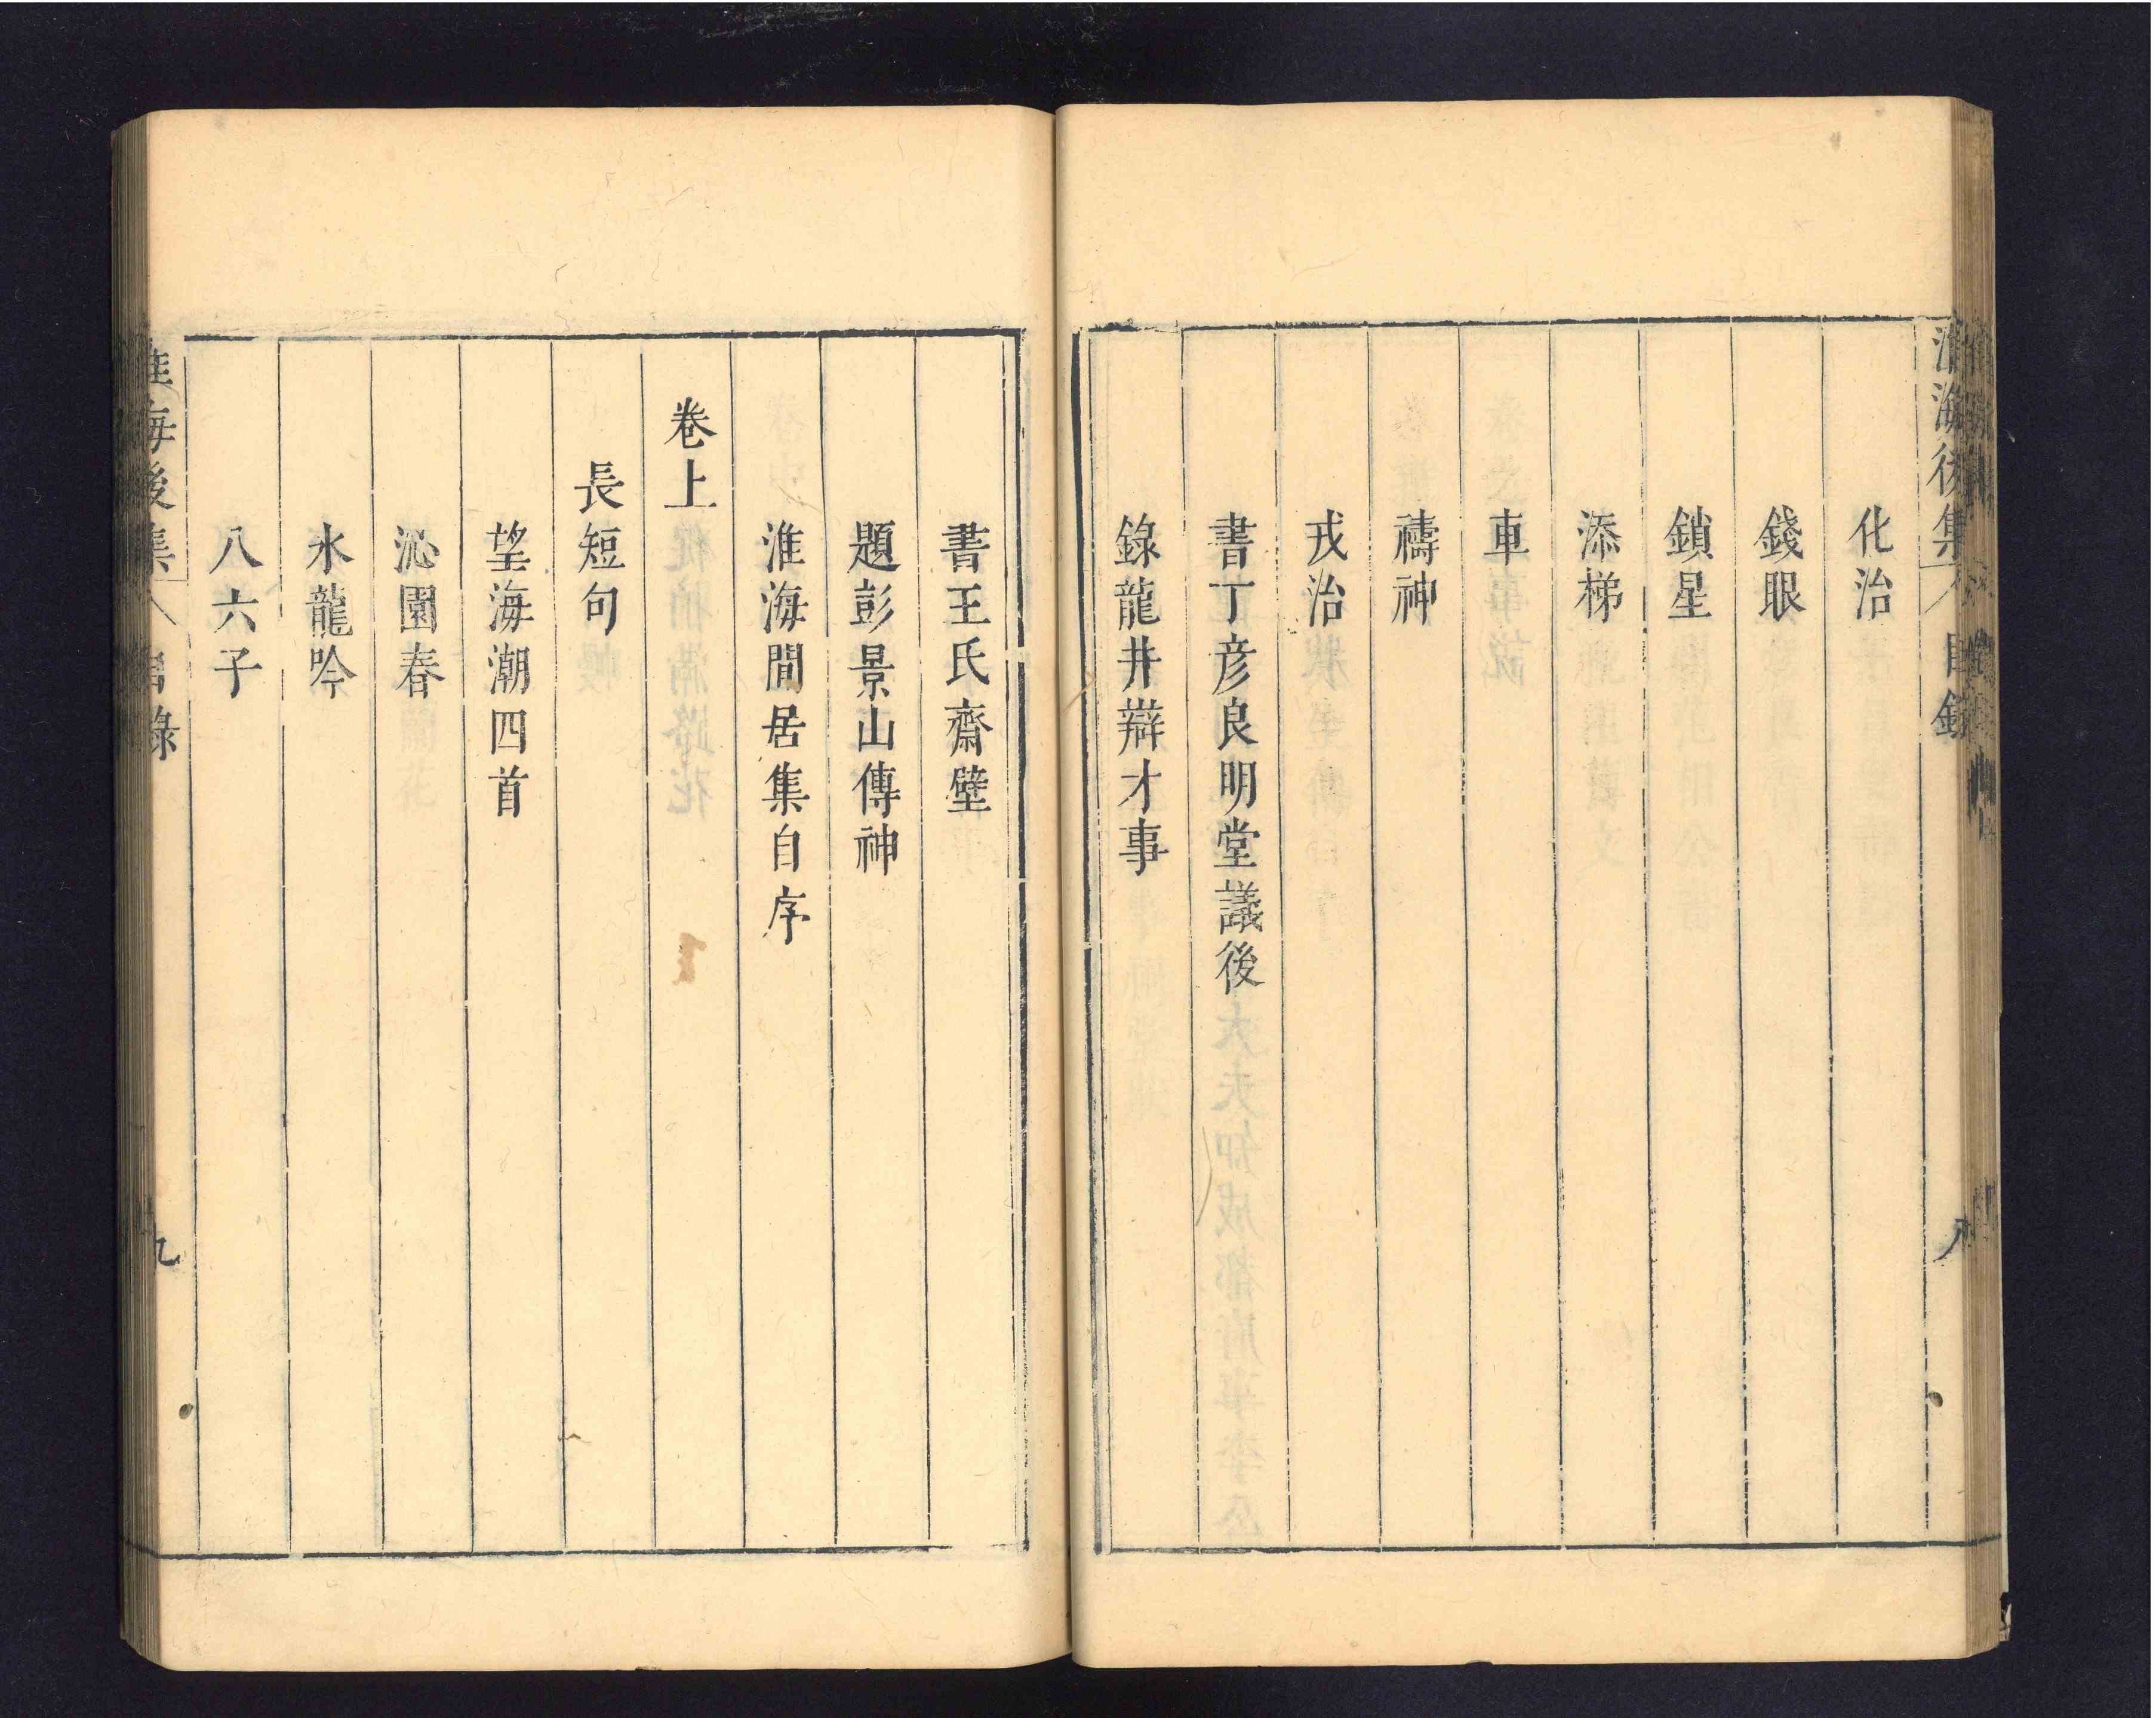 淮海後集 目錄 八
化治
錢眼
鎖星
添梯
車
禱神
戎治
書丁彥良明堂議後
錄龍井辯才事
書王氏齋壁
題彭景山傳神
淮海閒居集自序
卷上
長短句
望海潮四首
沁園春
水龍吟
八六子
淮海後集 目錄 九